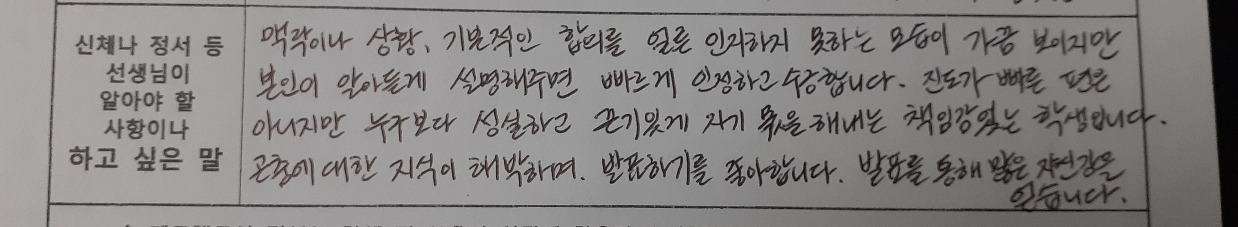 신체나 정서 등
선생님이
알아야 할
사항이나
하고 싶은 말
맥락이나 상황, 기본적인 합의를 얼른 인지하지 못하는 모습이 가끔 보이지만
본인이 알아듣게 설명해주면 빠르게 인정하고 수긍합니다. 진도가 빠른 편은
아니지만 누구보다 성실하고 끈기있게 자기 몫을 해내는 책임감있는 학생입니다.
곤충에 대한 지식이 해박하며, 발표하기를 좋아합니다. 발표를 통해 많은 자신감을
얻습니다.